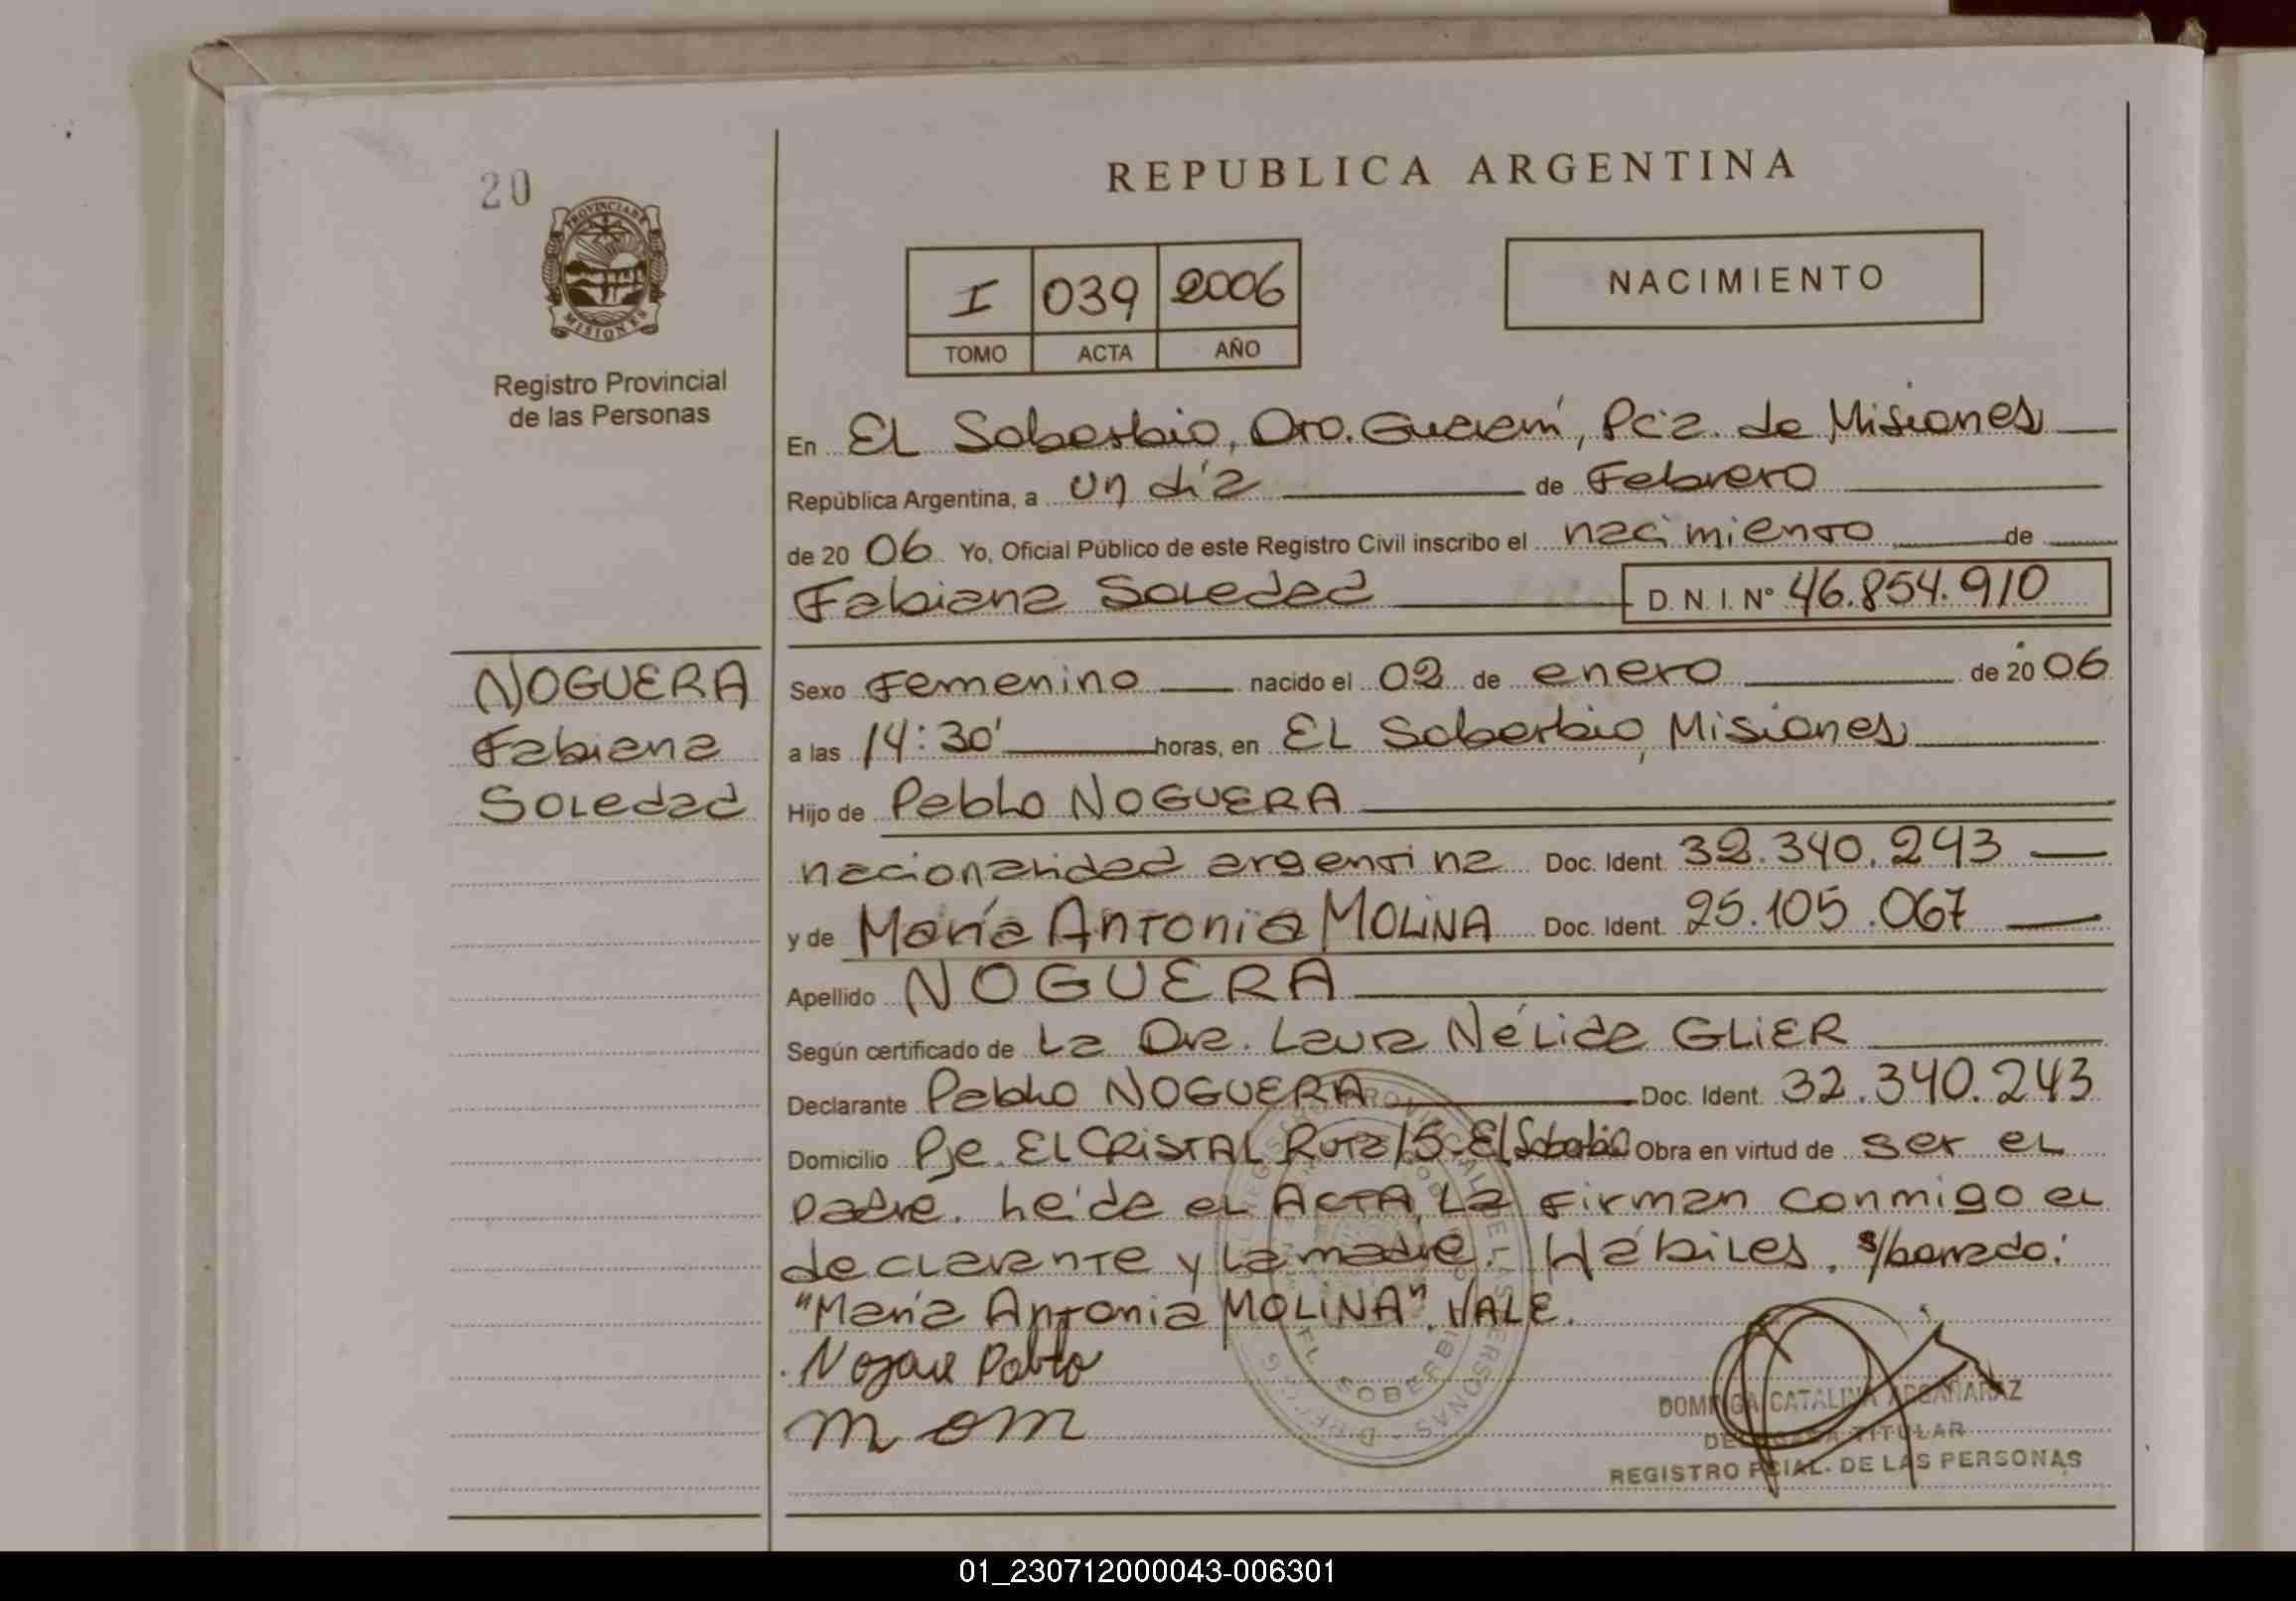 20
REPUBLICA ARGENTINA
PROVINCIA DE
MISIONES
Registro Provincial
de las Personas
I 039 2006
TOMO ACTA AÑO
NACIMIENTO
En EL Soberbio, Dto. Guaraní, Pcia. de Misiones
República Argentina, a un día de Febrero
de 20 06 Yo, Oficial Público de este Registro Civil inscribo el nacimiento de
Fabiana Soledad D. N. I. Nº 46.854.910
NOGUERA
Fabiana
Soledad
Sexo Femenino nacido el 02 de enero de 20 06
a las 14:30' horas, en EL Soberbio, Misiones
Hijo de Pablo NOGUERA
nacionalidad argentina Doc. Ident. 32.340.243
y de María Antonia MOLINA Doc. Ident. 25.105.067
Apellido NOGUERA
Según certificado de La Dra. Laura Nélida GLIER
Declarante Pablo NOGUERA Doc. Ident. 32.340.243
Domicilio Pje. EL CRISTAL Ruta 15-El Soberbio Obra en virtud de ser el
padre. Leída el ACTA, La Firman conmigo el
declarante y La madre. Hábiles. s/borrado:
"María Antonia MOLINA". VALE.
Pablo
m om
EL SOBERBIO
DOMINGA CATALINA ARGAÑARAZ
DELEGADA TITULAR
REGISTRO PCIAL. DE LAS PERSONAS
01_230712000043-006301